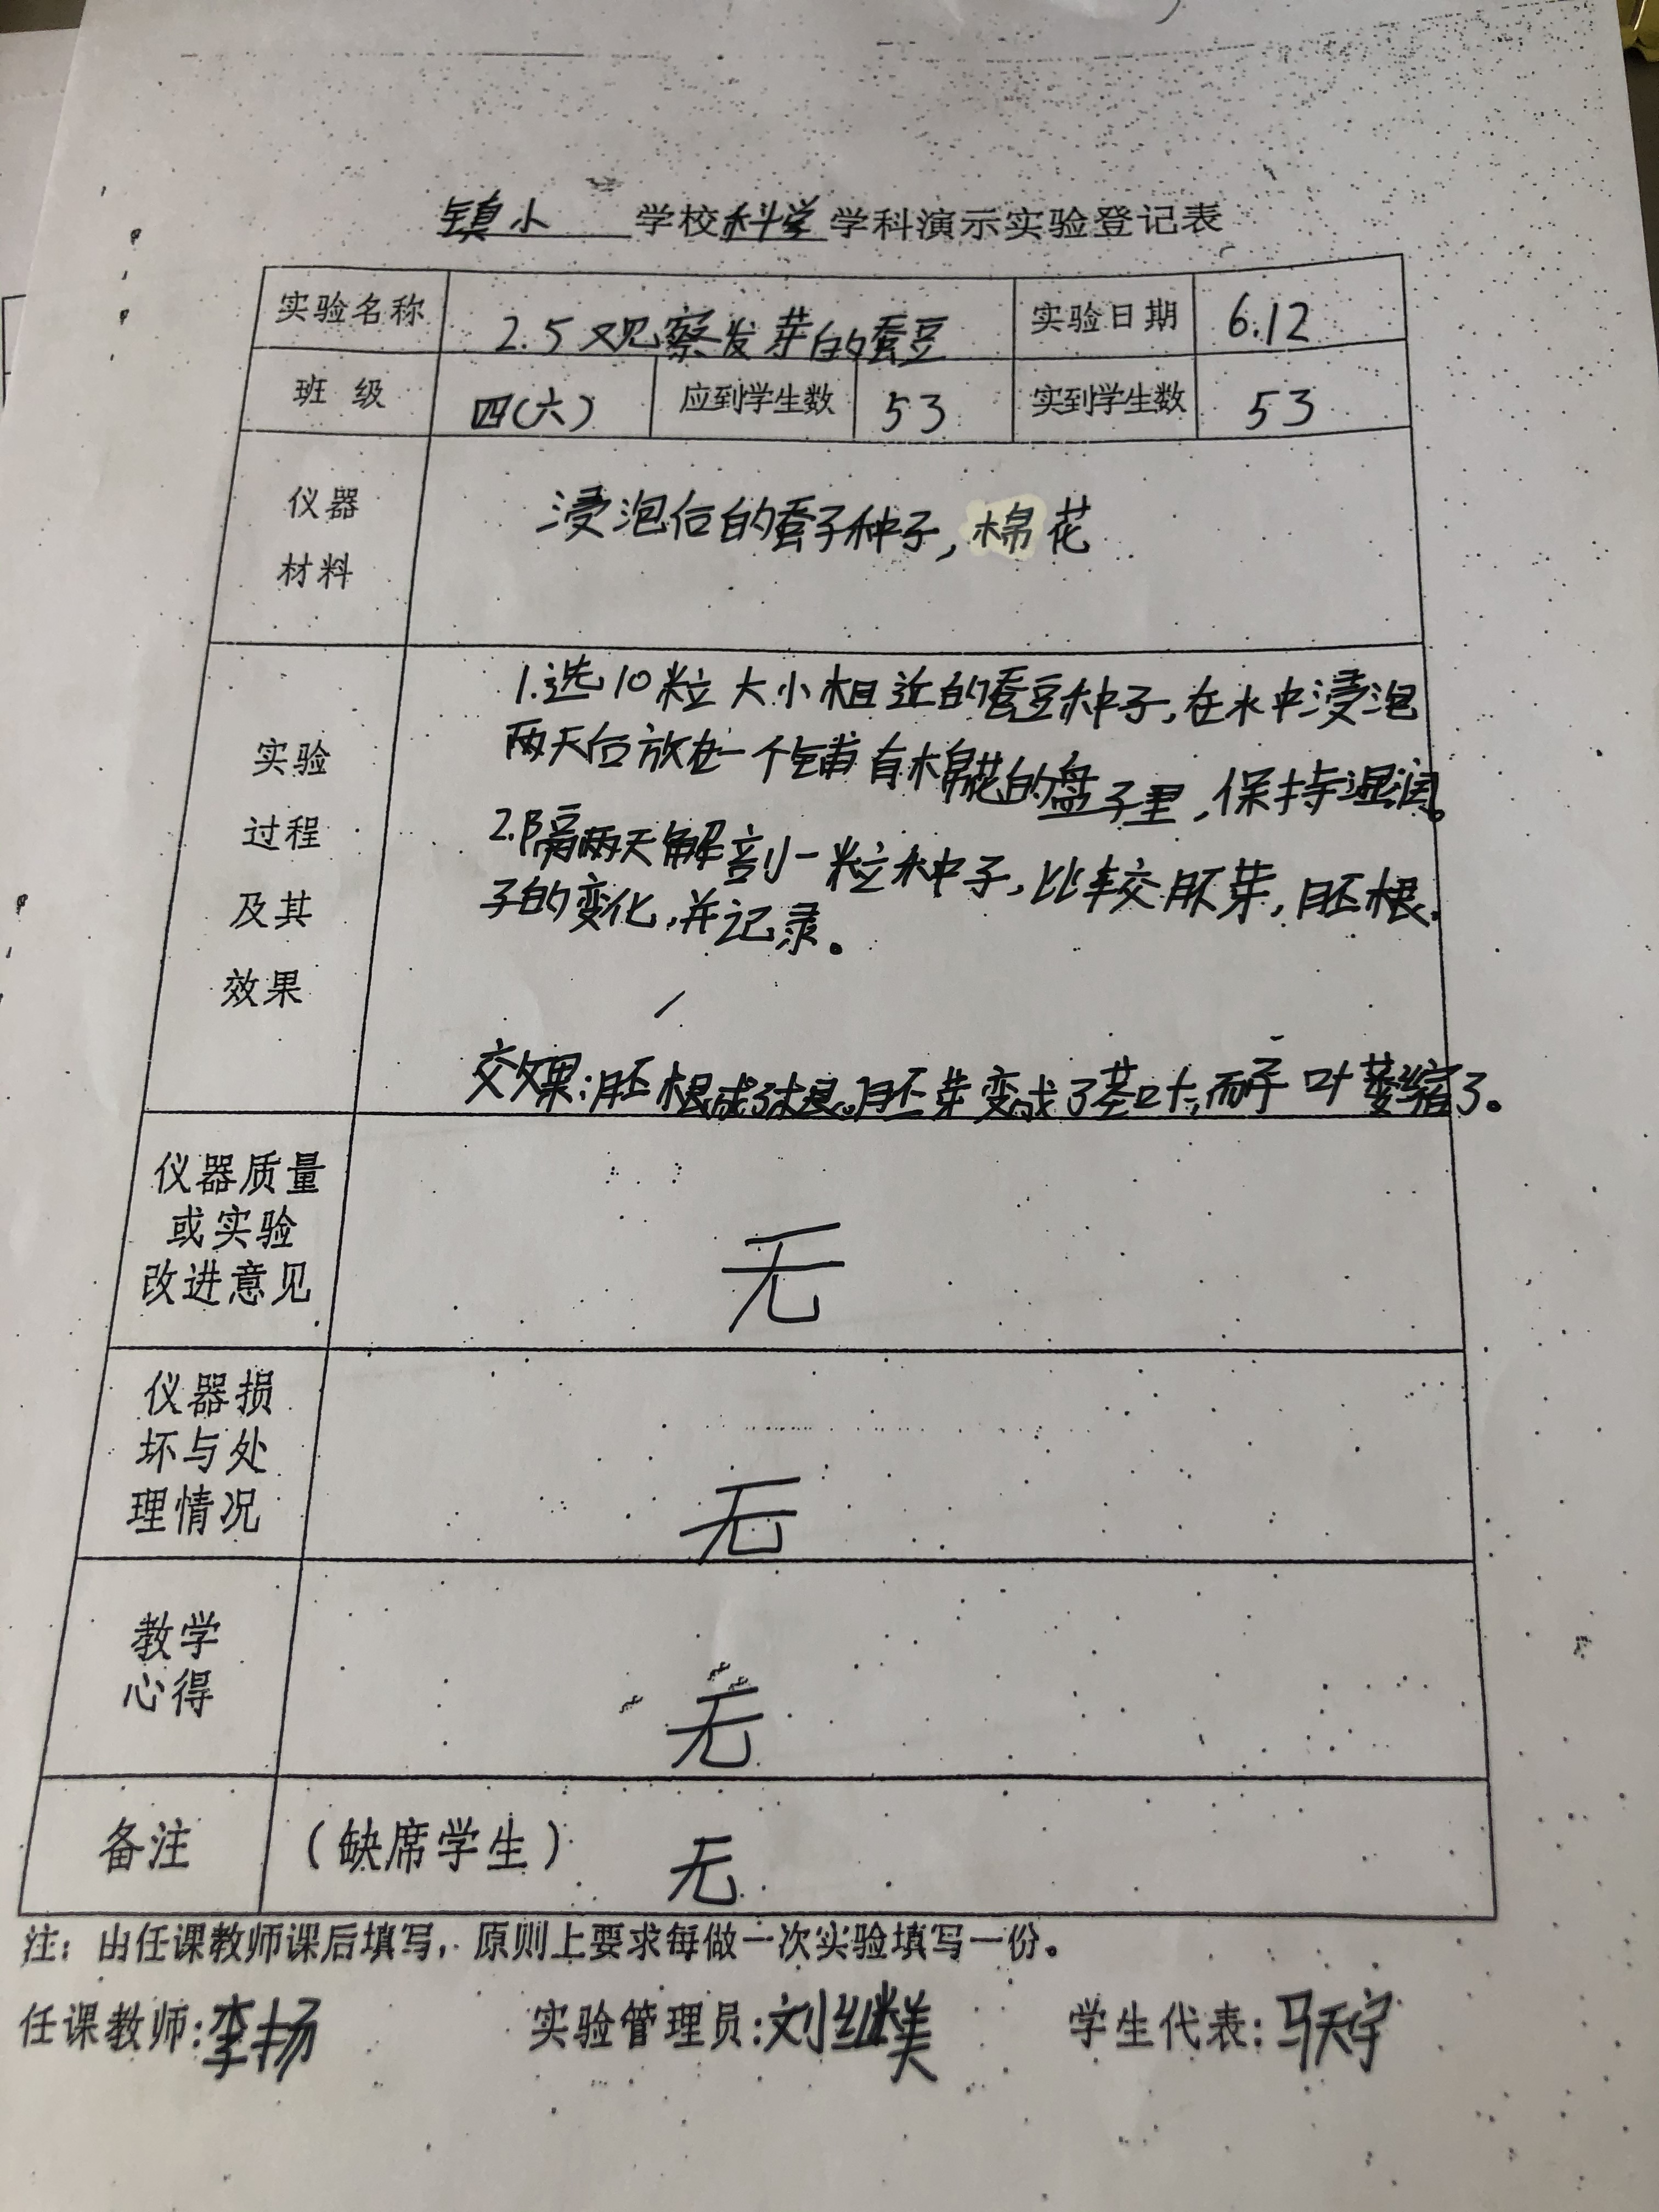 镇小 学校科学学科演示实验登记表
实验名称 2.5观察发芽的蚕豆 实验日期 6.12
班 级 四(六) 应到学生数 53 实到学生数 53
仪器
材料
浸泡后的蚕子种子,棉花
实验
过程
及其
效果
1.选10粒大小相近的蚕豆种子,在水中浸泡
两天后放在一个铺有棉花的盘子里,保持湿润。
2.隔两天解剖一粒种子,比较胚芽,胚根,
子的变化,并记录。
效果:胚根成了根。胚芽变成了茎叶,而子叶萎缩了。
仪器质量
或实验
改进意见
无
仪器损
坏与处
理情况
无
教学
心得
无
备注 (缺席学生) 无
注:由任课教师课后填写,原则上要求每做一次实验填写一份。
任课教师:李扬 实验管理员:刘继美 学生代表:马天宇